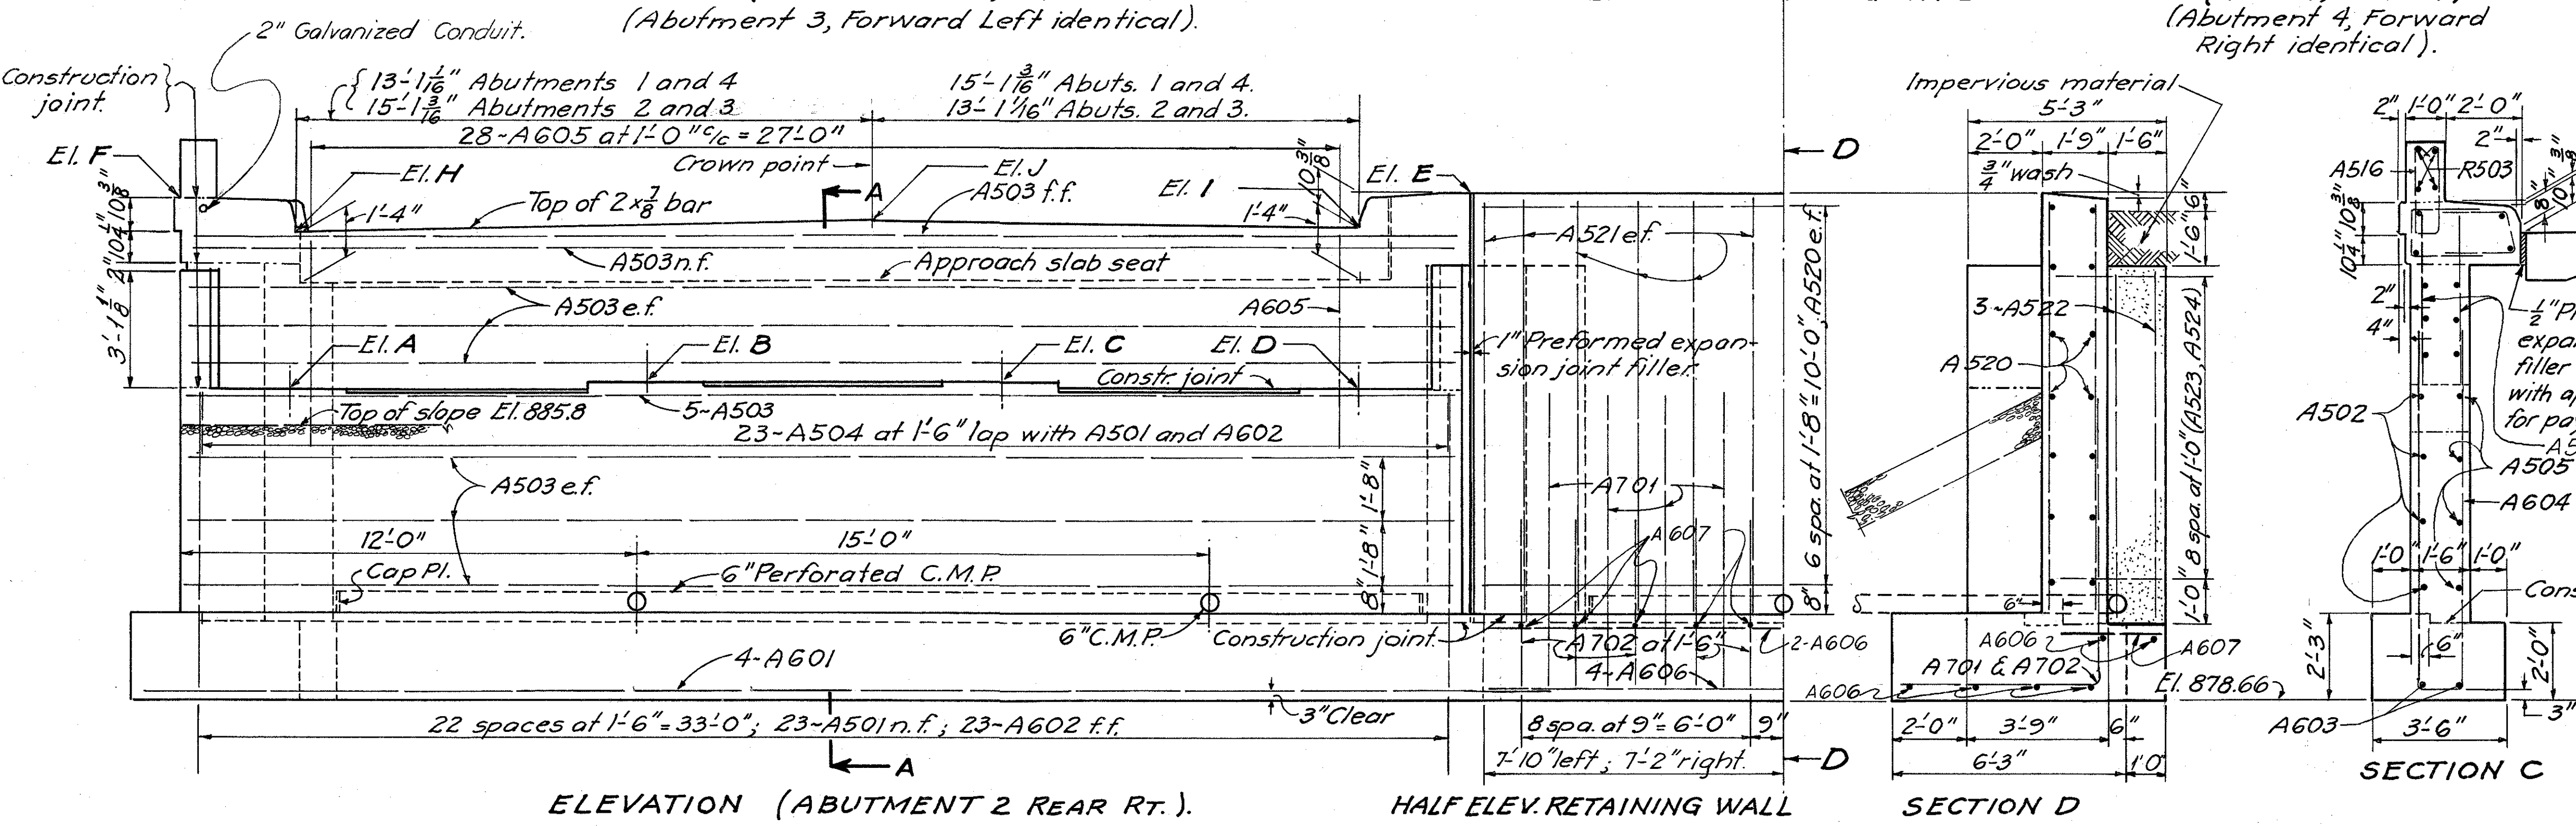 (Abutment 3, Forward Left identical).
(Abutment 4, Forward
Right identical).
2" Galvanized Conduit.
Construction
joint.
13'-1 1/16" Abutments 1 and 4
15'-1 3/16" Abutments 2 and 3
15'-1 3/16" Abuts. 1 and 4.
13'-1 1/16" Abuts. 2 and 3.
28~A605 at 1'-0" c/c = 27'-0"
Crown point
El. F
El. H
El. J
El. I
El. E
A
A503 f.f.
Top of 2 x 7/8 bar
1'-4"
1'-4"
10 3/8"
10 3/8"
10 1/4"
2"
3'-1 1/8"
A503 n.f.
Approach slab seat
A503 e.f.
A605
El. A
El. B
El. C
El. D
Constr. joint
Top of slope El. 885.8
5~A503
23~A504 at 1'-6" lap with A501 and A602
A503 e.f.
1'-8"
1'-8"
8"
12'-0"
15'-0"
Cap Pl.
6" Perforated C.M.P.
6" C.M.P.
Construction joint
4~A601
3" Clear
22 spaces at 1'-6" = 33'-0"; 23~A501 n.f.; 23~A602 f.f.
A
ELEVATION (ABUTMENT 2 REAR RT.).
D
A521 e.f.
1" Preformed expan-
sion joint filler
6 spa. at 1'-8" = 10'-0", A520 e.f.
8"
A701
A607
A702 at 1'-6"
2-A606
4~A606
8 spa. at 9" = 6'-0"
9"
7'-10" left; 7'-2" right.
D
HALF ELEV. RETAINING WALL
Impervious material
5'-3"
2'-0"
1'-9"
1'-6"
3/4" wash
6"
1'-6"
3~A522
A520
8 spa. at 1'-0" (A523, A524)
1'-0"
6"
A606
A607
A701 & A702
A606
El. 878.66
2'-0"
3'-9"
6"
6'-3"
1'0"
SECTION D
2"
1'-0"
2'-0"
2"
A516
R503
10 3/8"
10 1/4"
8"
10 3/8"
2"
4"
1/2"
expa
filler
with a
for pa
A502
A505
A604
1'-0"
1'-6"
1'-0"
Cons
6"
2'-3"
2'-0"
3"
A603
3'-6"
SECTION C